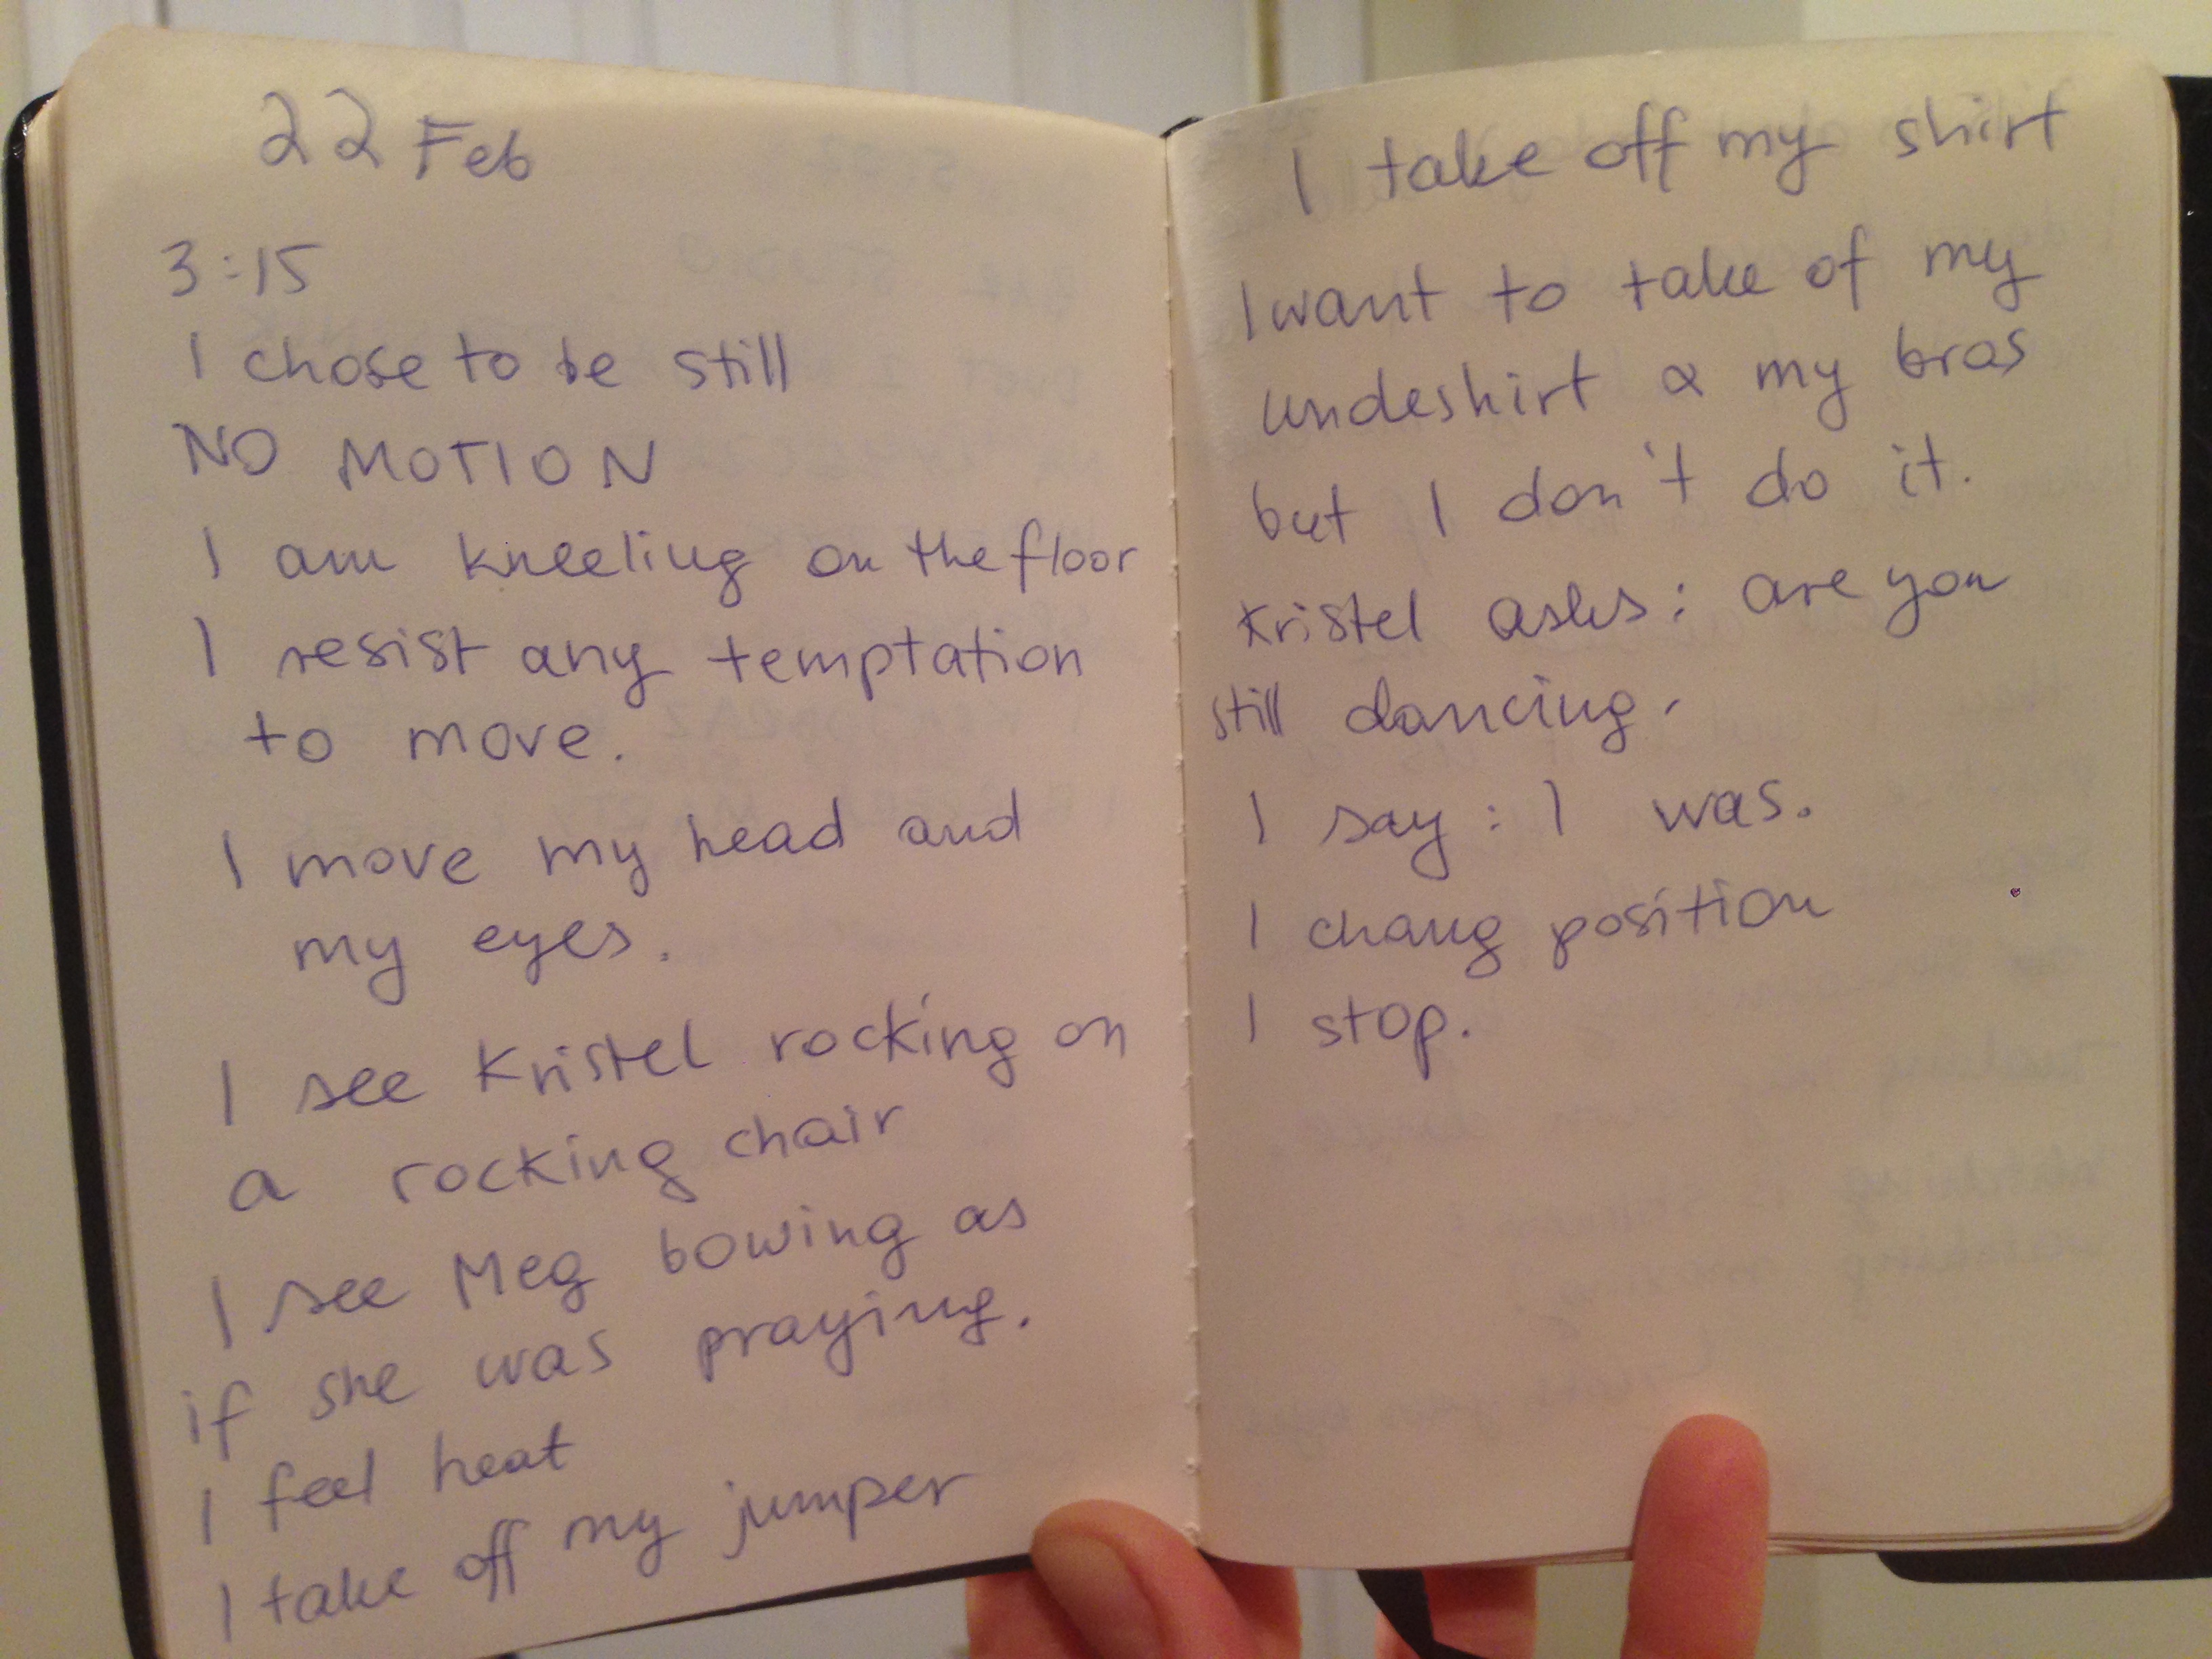 22 Feb
3:15
I chose to be still
NO MOTION
I am kneeling on the floor
I resist any temptation
to move.
I move my head and
my eyes.
I see Kristel rocking on
a rocking chair
I see Meg bowing as
if she was praying.
I feel heat
I take off my jumper
I take off my shirt
I want to take of my
undeshirt & my bras
but I don't do it.
Kristel asks: are you
still dancing.
I say: I was.
I chang position
I stop.